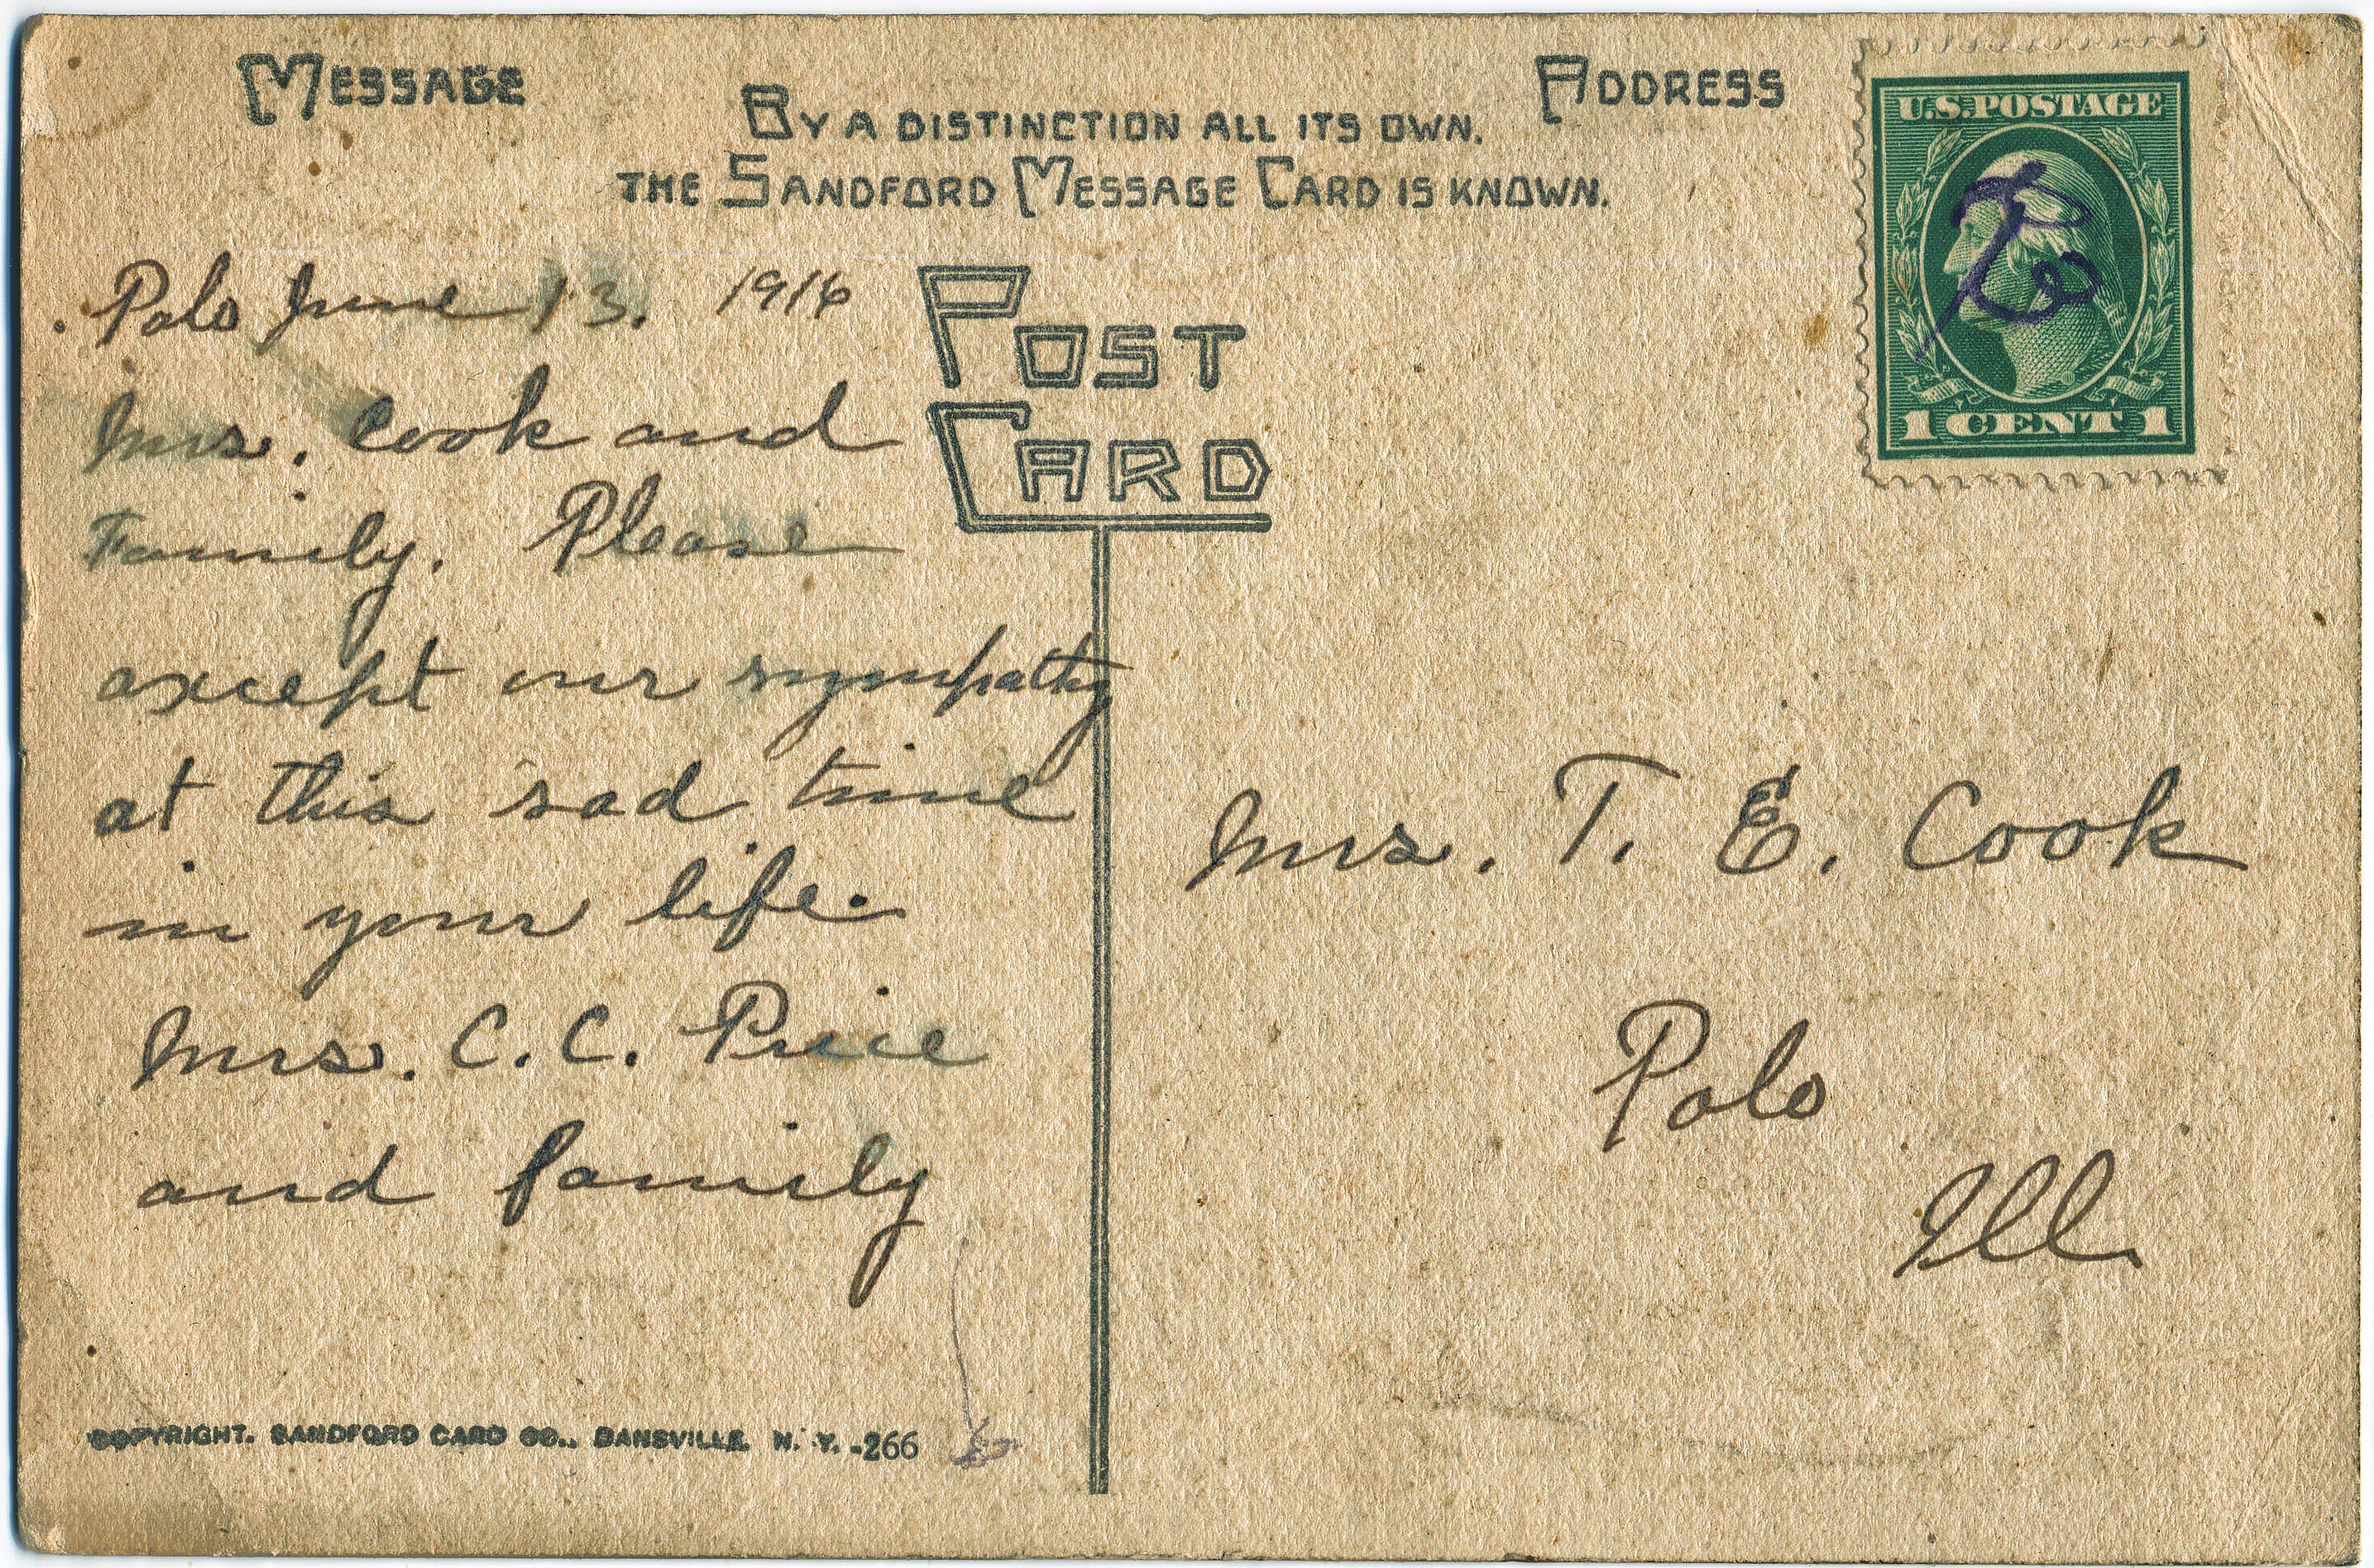 MESSAGE
ADDRESS
BY A DISTINCTION ALL ITS OWN.
THE SANDFORD MESSAGE CARD IS KNOWN.
POST
CARD
U.S. POSTAGE
1 CENT 1
Polo June 13. 1916
Mrs. Cook and
Family. Please
except our sympathy
at this sad time
in your life.
Mrs. C. C. Price
and family
Mrs. T. E. Cook
Polo
Ill.
COPYRIGHT. SANDFORD CARD CO., DANSVILLE. N. Y. -266